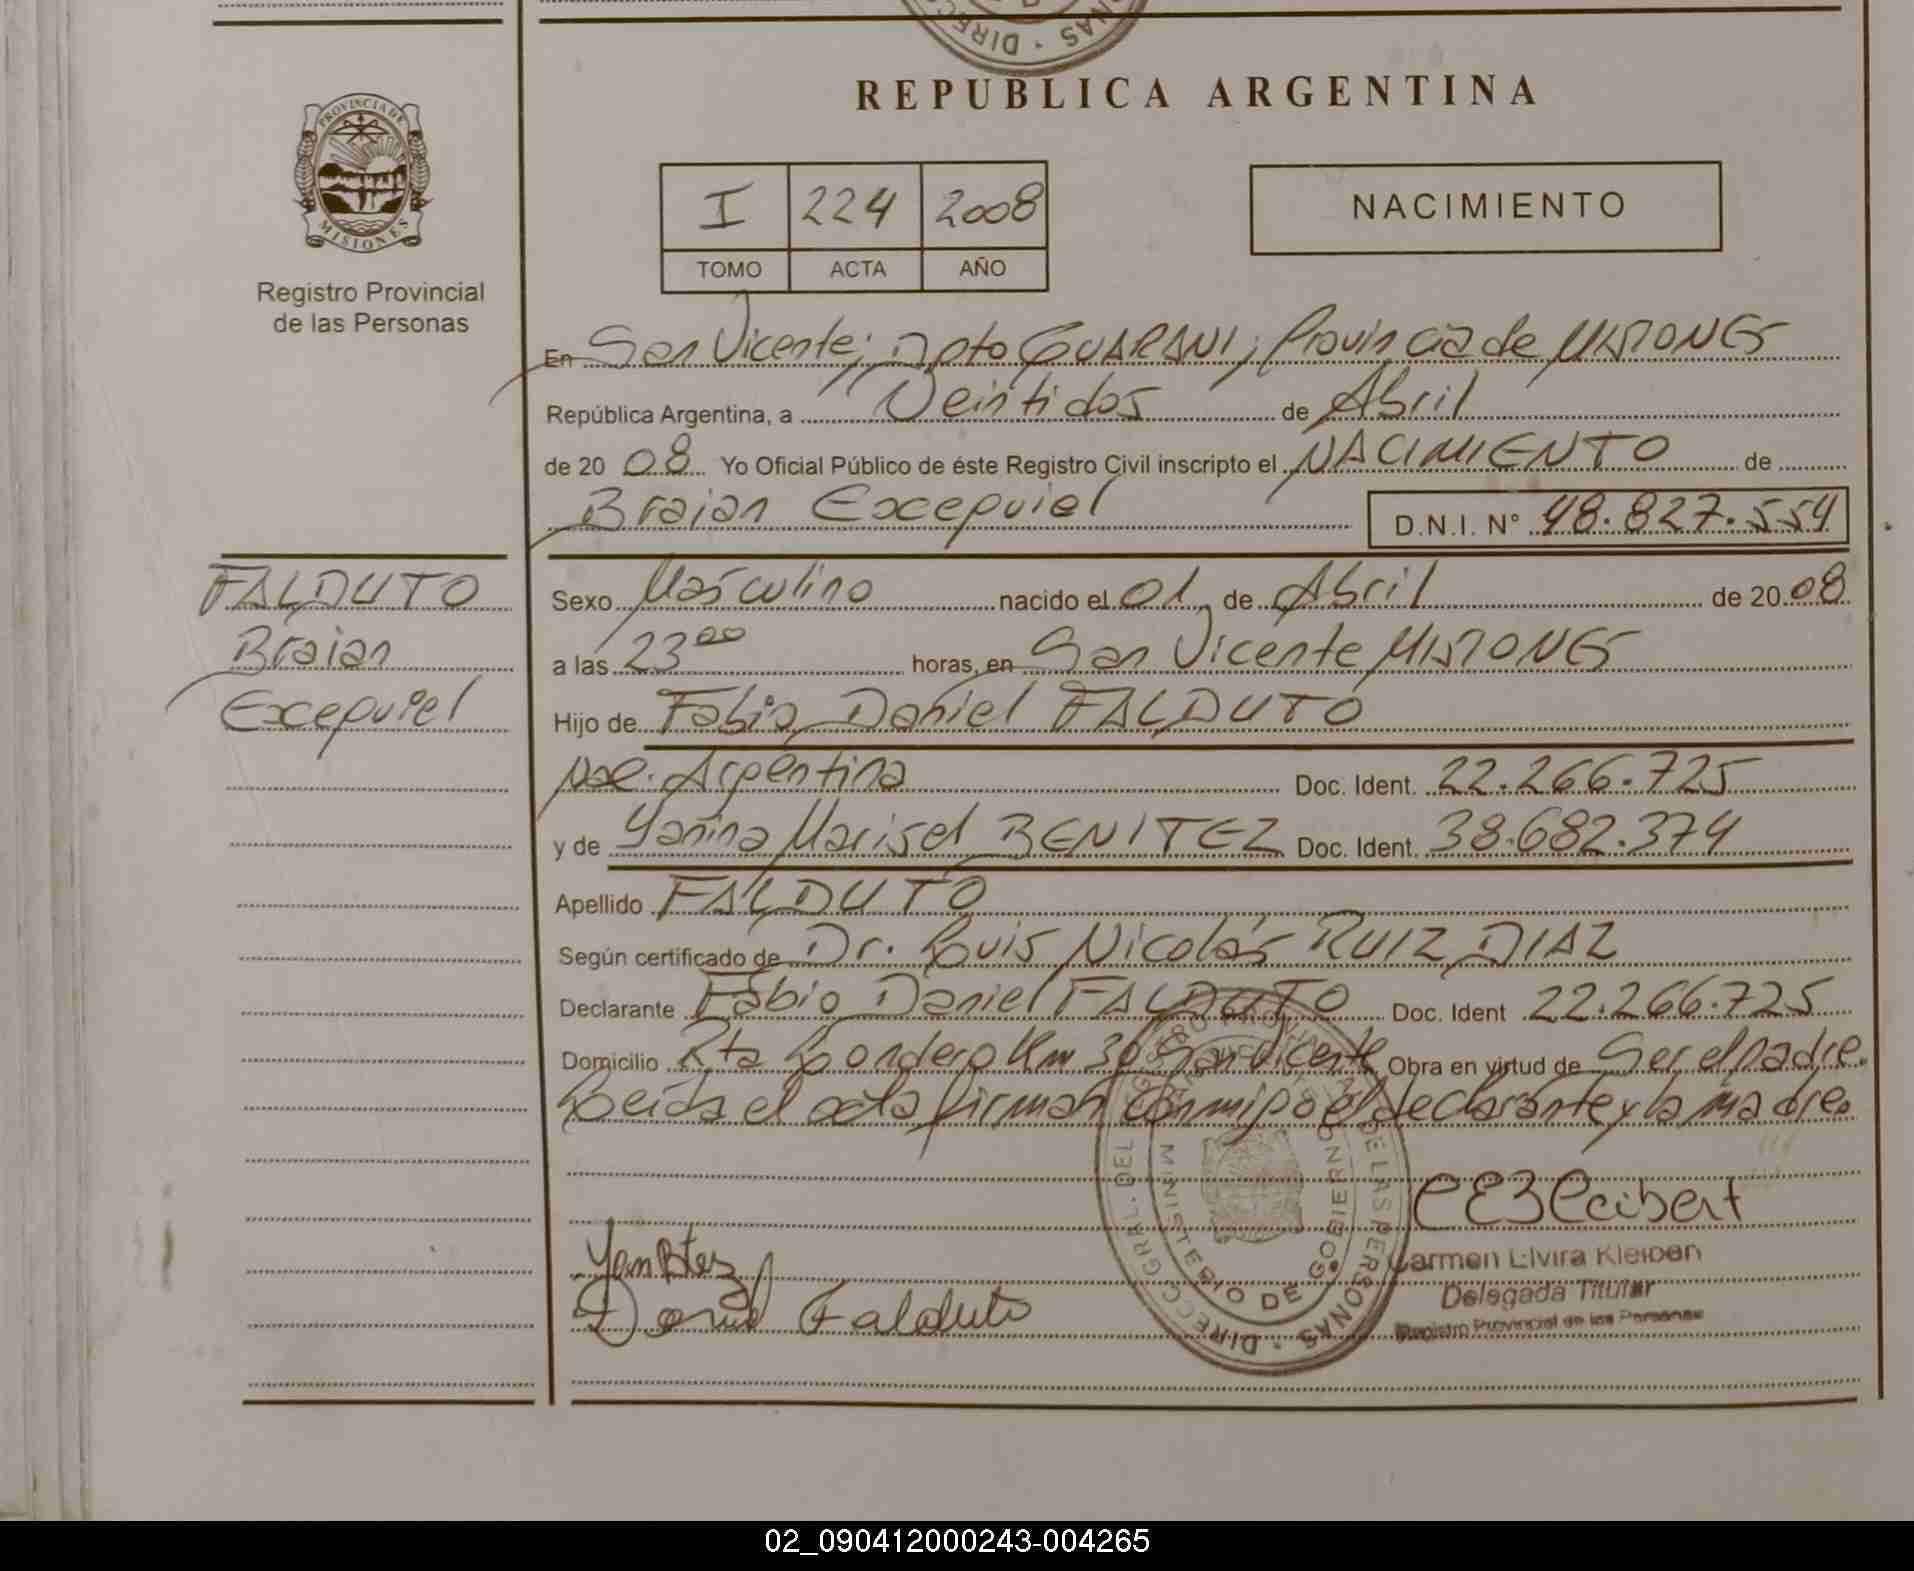 REPUBLICA ARGENTINA
PROVINCIA DE
MISIONES
Registro Provincial
de las Personas
I 224 2008
TOMO ACTA AÑO
NACIMIENTO
En San Vicente; Dpto GUARANI; Provincia de MISIONES
República Argentina, a Veintidos de Abril
de 20 08 Yo Oficial Público de éste Registro Civil inscripto el NACIMIENTO de
Braian Excequiel D.N.I. N° 48.827.554
FALDUTO
Braian
Excequiel
Sexo Masculino nacido el 01 de Abril de 20 08
a las 23 00 horas, en San Vicente MISIONES
Hijo de Fabio Daniel FALDUTO
Nac. Argentina Doc. Ident. 22.266.725
y de Yanina Marisel BENITEZ Doc. Ident. 38.682.374
Apellido FALDUTO
Según certificado de Dr. Luis Nicolás RUIZ DIAZ
Declarante Fabio Daniel FALDUTO Doc. Ident 22.266.725
Domicilio Rta Londero Km 30 San Vicente Obra en virtud de Ser el padre.
Leida el acta firman conmigo el declarante y la madre.
DIRECC GRAL. DEL REGISTRO PROVINCIAL DE LAS PERSONAS
MINISTERIO DE GOBIERNO
Carmen Elvira Kleibert
Delegada Titular
Registro Provincial de las Personas
Daniel Falduto
02_090412000243-004265